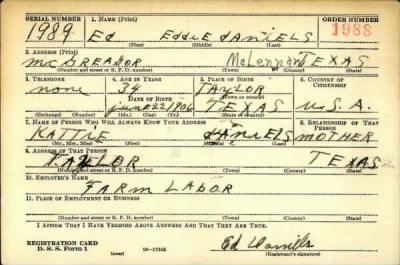 SERIAL NUMBER 1. NAME (Print) ORDER NUMBER
1989 Ed Eddie DANIELS 1988
(First) (Middle) (Last)
2. ADDRESS (Print)
McGREADOR McLennan TEXAS
(Number and street or R. F. D. number) (Town) (County) (State)
3. TELEPHONE 4. AGE IN YEARS 5. PLACE OF BIRTH 6. COUNTRY OF CITIZENSHIP
none 34 TAylor
DATE OF BIRTH (Town or county)
June 22 1906 TEXAS U.S.A.
(Exchange) (No.) (Mo.) (Day) (Yr.) (State or country)
7. NAME OF PERSON WHO WILL ALWAYS KNOW YOUR ADDRESS 8. RELATIONSHIP OF THAT PERSON
KATTIE DANIELS MOTHER
(Mr., Mrs., Miss) (First) (Middle) (Last)
9. ADDRESS OF THAT PERSON
TAYLOR TEXAS
(Number and street or R. F. D. number) (Town) (County) (State)
10. EMPLOYER'S NAME
FARM LABOR
11. PLACE OF EMPLOYMENT OR BUSINESS
(Number and street or R. F. D. number) (Town) (County) (State)
I AFFIRM THAT I HAVE VERIFIED ABOVE ANSWERS AND THAT THEY ARE TRUE.
REGISTRATION CARD
D. S. S. Form 1 (over) 16—17105 Ed Daniels
(Registrant's signature)